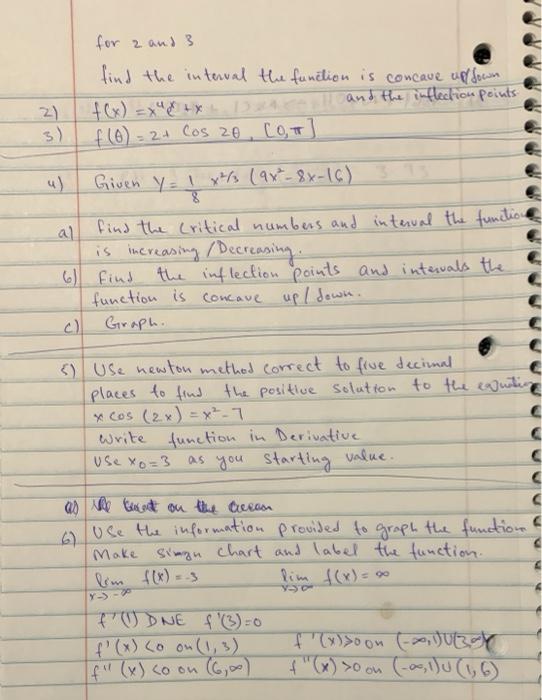 for 2 and 3
find the interval the function is concave up/down
and the inflection points
2) f(x) = x⁴eˣ + x
3) f(θ) = 2 + cos 2θ, [0, π]
4) Given y = 1/8 x^2/3 (9x² - 8x - 16)
a) find the critical numbers and interval the function
is increasing / Decreasing.
b) Find the inflection points and intervals the
function is concave up / down.
c) Graph.
5) Use newton method correct to five decimal
places to find the positive solution to the equation
x cos (2x) = x² - 7
write function in Derivative
Use x₀ = 3 as you starting value.
6) Use the information provided to graph the function
Make sign chart and label the function.
lim x→-∞ f(x) = -3 lim x→∞ f(x) = ∞
f'(1) DNE f'(3) = 0
f'(x) < 0 on (1, 3) f'(x) > 0 on (-∞, 1) U (3, ∞)
f''(x) < 0 on (6, ∞) f''(x) > 0 on (-∞, 1) U (1, 6)